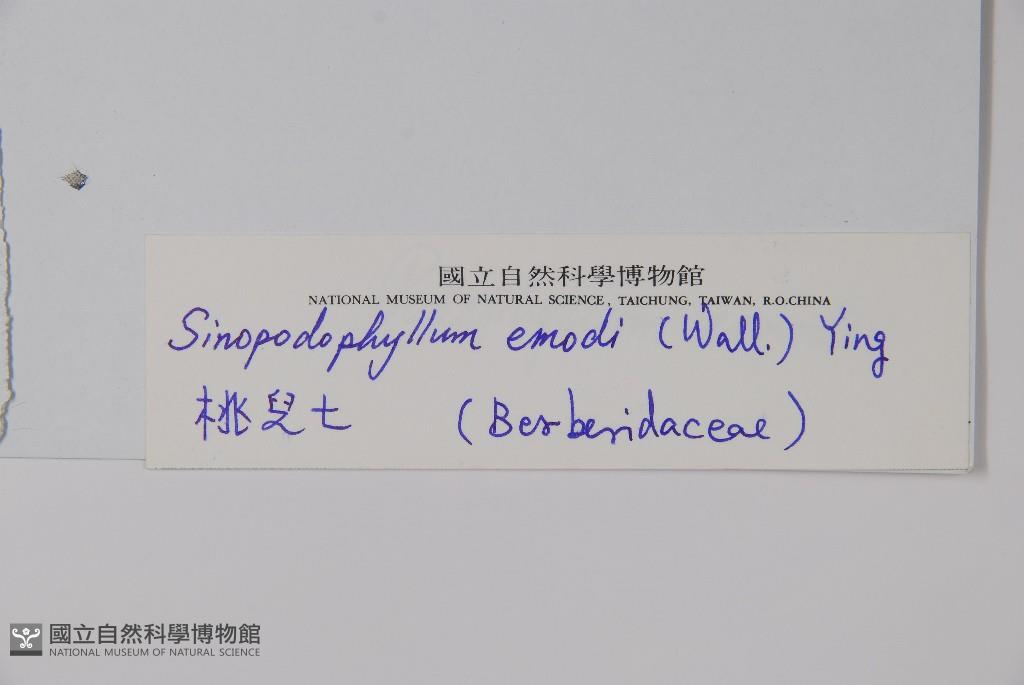 國立自然科學博物館
NATIONAL MUSEUM OF NATURAL SCIENCE, TAICHUNG, TAIWAN, R.O.CHINA
Sinopodophyllum emodi (Wall.) Ying
桃兒七 (Berberidaceae)
國立自然科學博物館
NATIONAL MUSEUM OF NATURAL SCIENCE